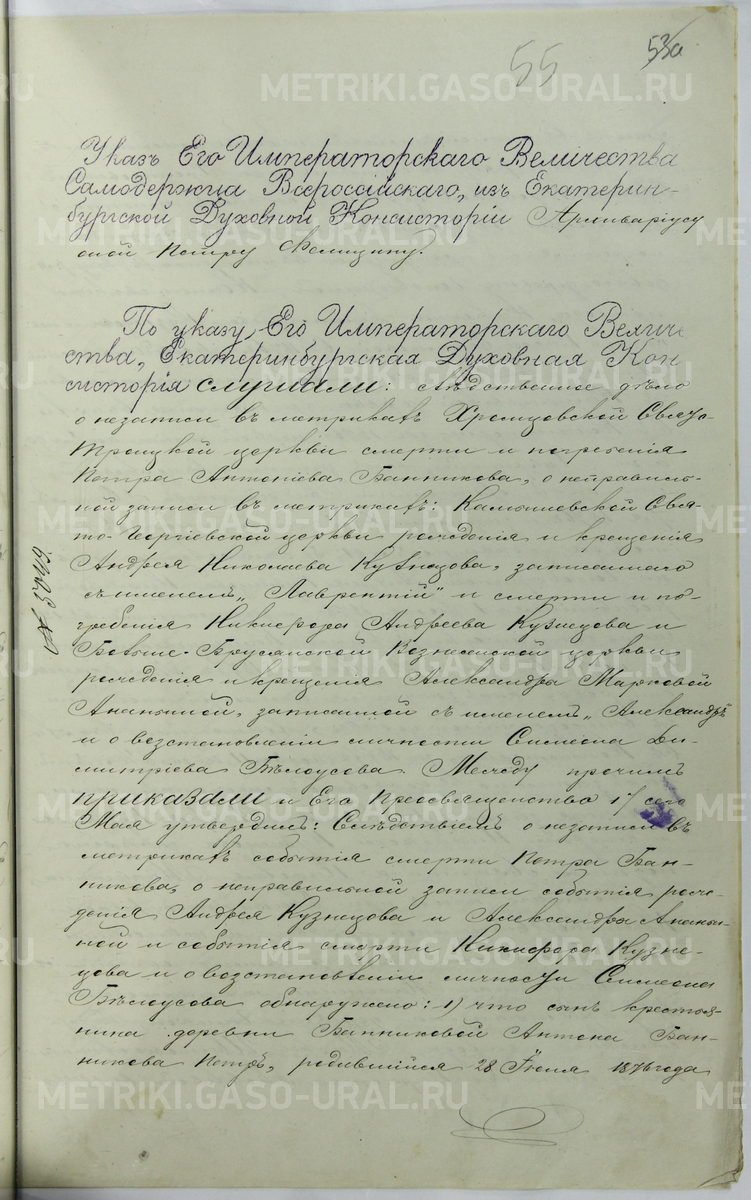 55
53а
Указъ Его Императорскаго Величества
Самодержца Всероссійскаго, изъ Екатерин-
бургской Духовной Консисторіи Архиваріусу
оной Петру
По указу Его Императорскаго Величе
ства, Екатеринбургская Духовная Кон
систорія слушали: слѣдственное дѣло
о незаписи въ метрикахъ Хромцовской Свято-
Троицкой церкви смерти и погребенія
Петра Антоніева Банникова, о неправиль-
ной записи въ метрикахъ: Камышевской Свя-
то-Георгіевской церкви рожденія и крещенія
Андрея Николаева Кузнецова, записаннаго
съ именемъ „Лаврентій" и смерти и по-
гребенія Никифора Андреева Кузнецова и
Бруслянской Вознесенской церкви
рожденія и крещенія Александры Марковой
Ананьиной, записанной съ именемъ „Александръ
и о возстановленіи личности Симеона Ди-
митріева Бѣлоусова. Между прочимъ
приказали и Его Преосвященство 17 сего
Мая утвердилъ: Слѣдствіемъ о незаписи въ
метрикахъ событія смерти Петра Бан-
никова, о неправильной записи событія рож-
денія Андрея Кузнецова и Александры Ананьи-
ной и событія смерти Никифора Кузне-
цова и о возстановленіи личности Симеона
Бѣлоусова обнаружено: 1) что сынъ крестья-
нина деревни Банниковой Антона Бан-
никова Петръ, родившійся 28 Іюля 1876 года
№ 5049.
METRIKI.GASO-URAL.RU